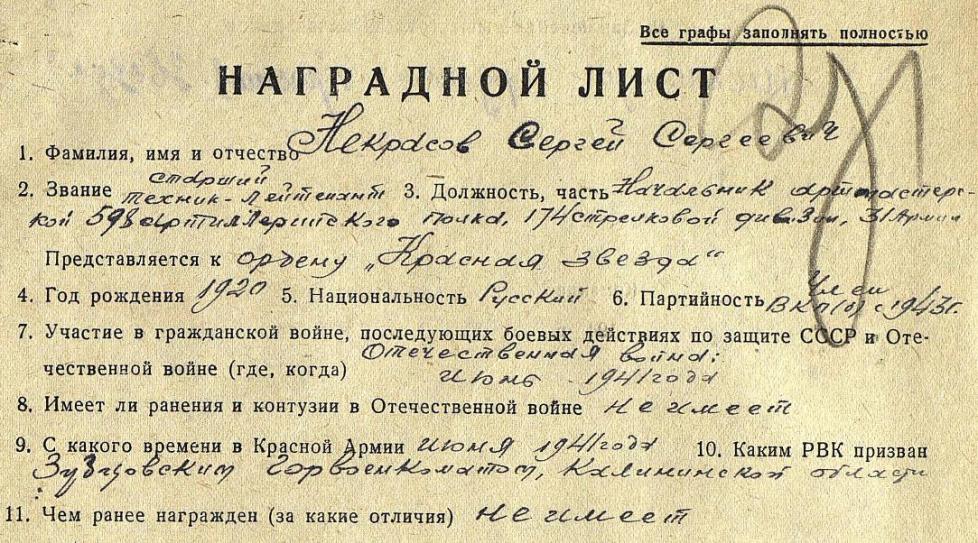 Все графы заполнять полностью
НАГРАДНОЙ ЛИСТ
1. Фамилия, имя и отчество Некрасов Сергей Сергеевич
2. Звание старший техник-лейтенант 3. Должность, часть Начальник артмастерс-
кой 598 артиллерийского полка, 174 стрелковой дивизии, 31 Армии
Представляется к ордену „Красная звезда“
4. Год рождения 1920 5. Национальность Русский 6. Партийность Член ВКП(б) с 1943г.
7. Участие в гражданской войне, последующих боевых действиях по защите СССР и Оте-
чественной войне (где, когда) Отечественная война:
июнь 1941 года
8. Имеет ли ранения и контузии в Отечественной войне не имеет
9. С какого времени в Красной Армии июня 1941 года 10. Каким РВК призван
Зубцовским горвоенкоматом, Калининской области
11. Чем ранее награжден (за какие отличия) не имеет